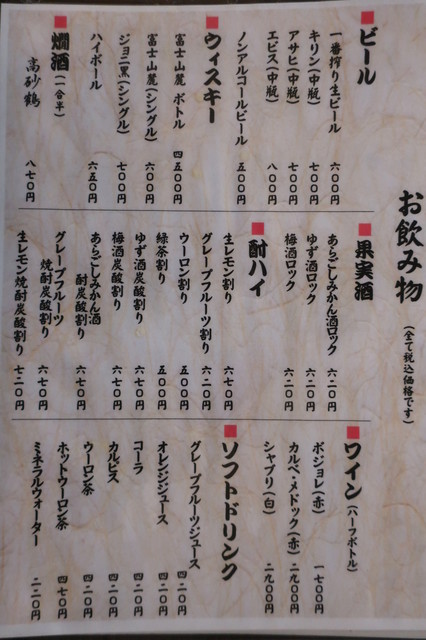 お飲み物
(全て税込価格です)
ビール
一番搾り生ビール 六〇〇円
キリン(中瓶) 七〇〇円
アサヒ(中瓶) 七〇〇円
エビス(中瓶) 八〇〇円
ノンアルコールビール 五〇〇円
ウィスキー
富士山麓 ボトル 四五〇〇円
富士山麓(シングル) 六〇〇円
ジョニ黒(シングル) 七〇〇円
ハイボール 六五〇円
燗酒(一合半)
高砂鶴 八七〇円
果実酒
あらごしみかん酒ロック 六二〇円
ゆず酒ロック 六二〇円
梅酒ロック 六二〇円
酎ハイ
生レモン割り 六七〇円
グレープフルーツ割り 六二〇円
ウーロン割り 五〇〇円
緑茶割り 五〇〇円
ゆず酒炭酸割り 六七〇円
梅酒炭酸割り 六七〇円
あらごしみかん酒
酎炭酸割り 六七〇円
グレープフルーツ
焼酎炭酸割り 六七〇円
生レモン焼酎炭酸割り 七二〇円
ワイン(ハーフボトル)
ボジョレ(赤) 一七〇〇円
カルベ・メドック(赤) 二九〇〇円
シャブリ(白) 二九〇〇円
ソフトドリンク
グレープフルーツジュース 四二〇円
オレンジジュース 四二〇円
コーラ 四二〇円
カルピス 四二〇円
ウーロン茶 四二〇円
ホットウーロン茶 四七〇円
ミネラルウォーター 二二〇円